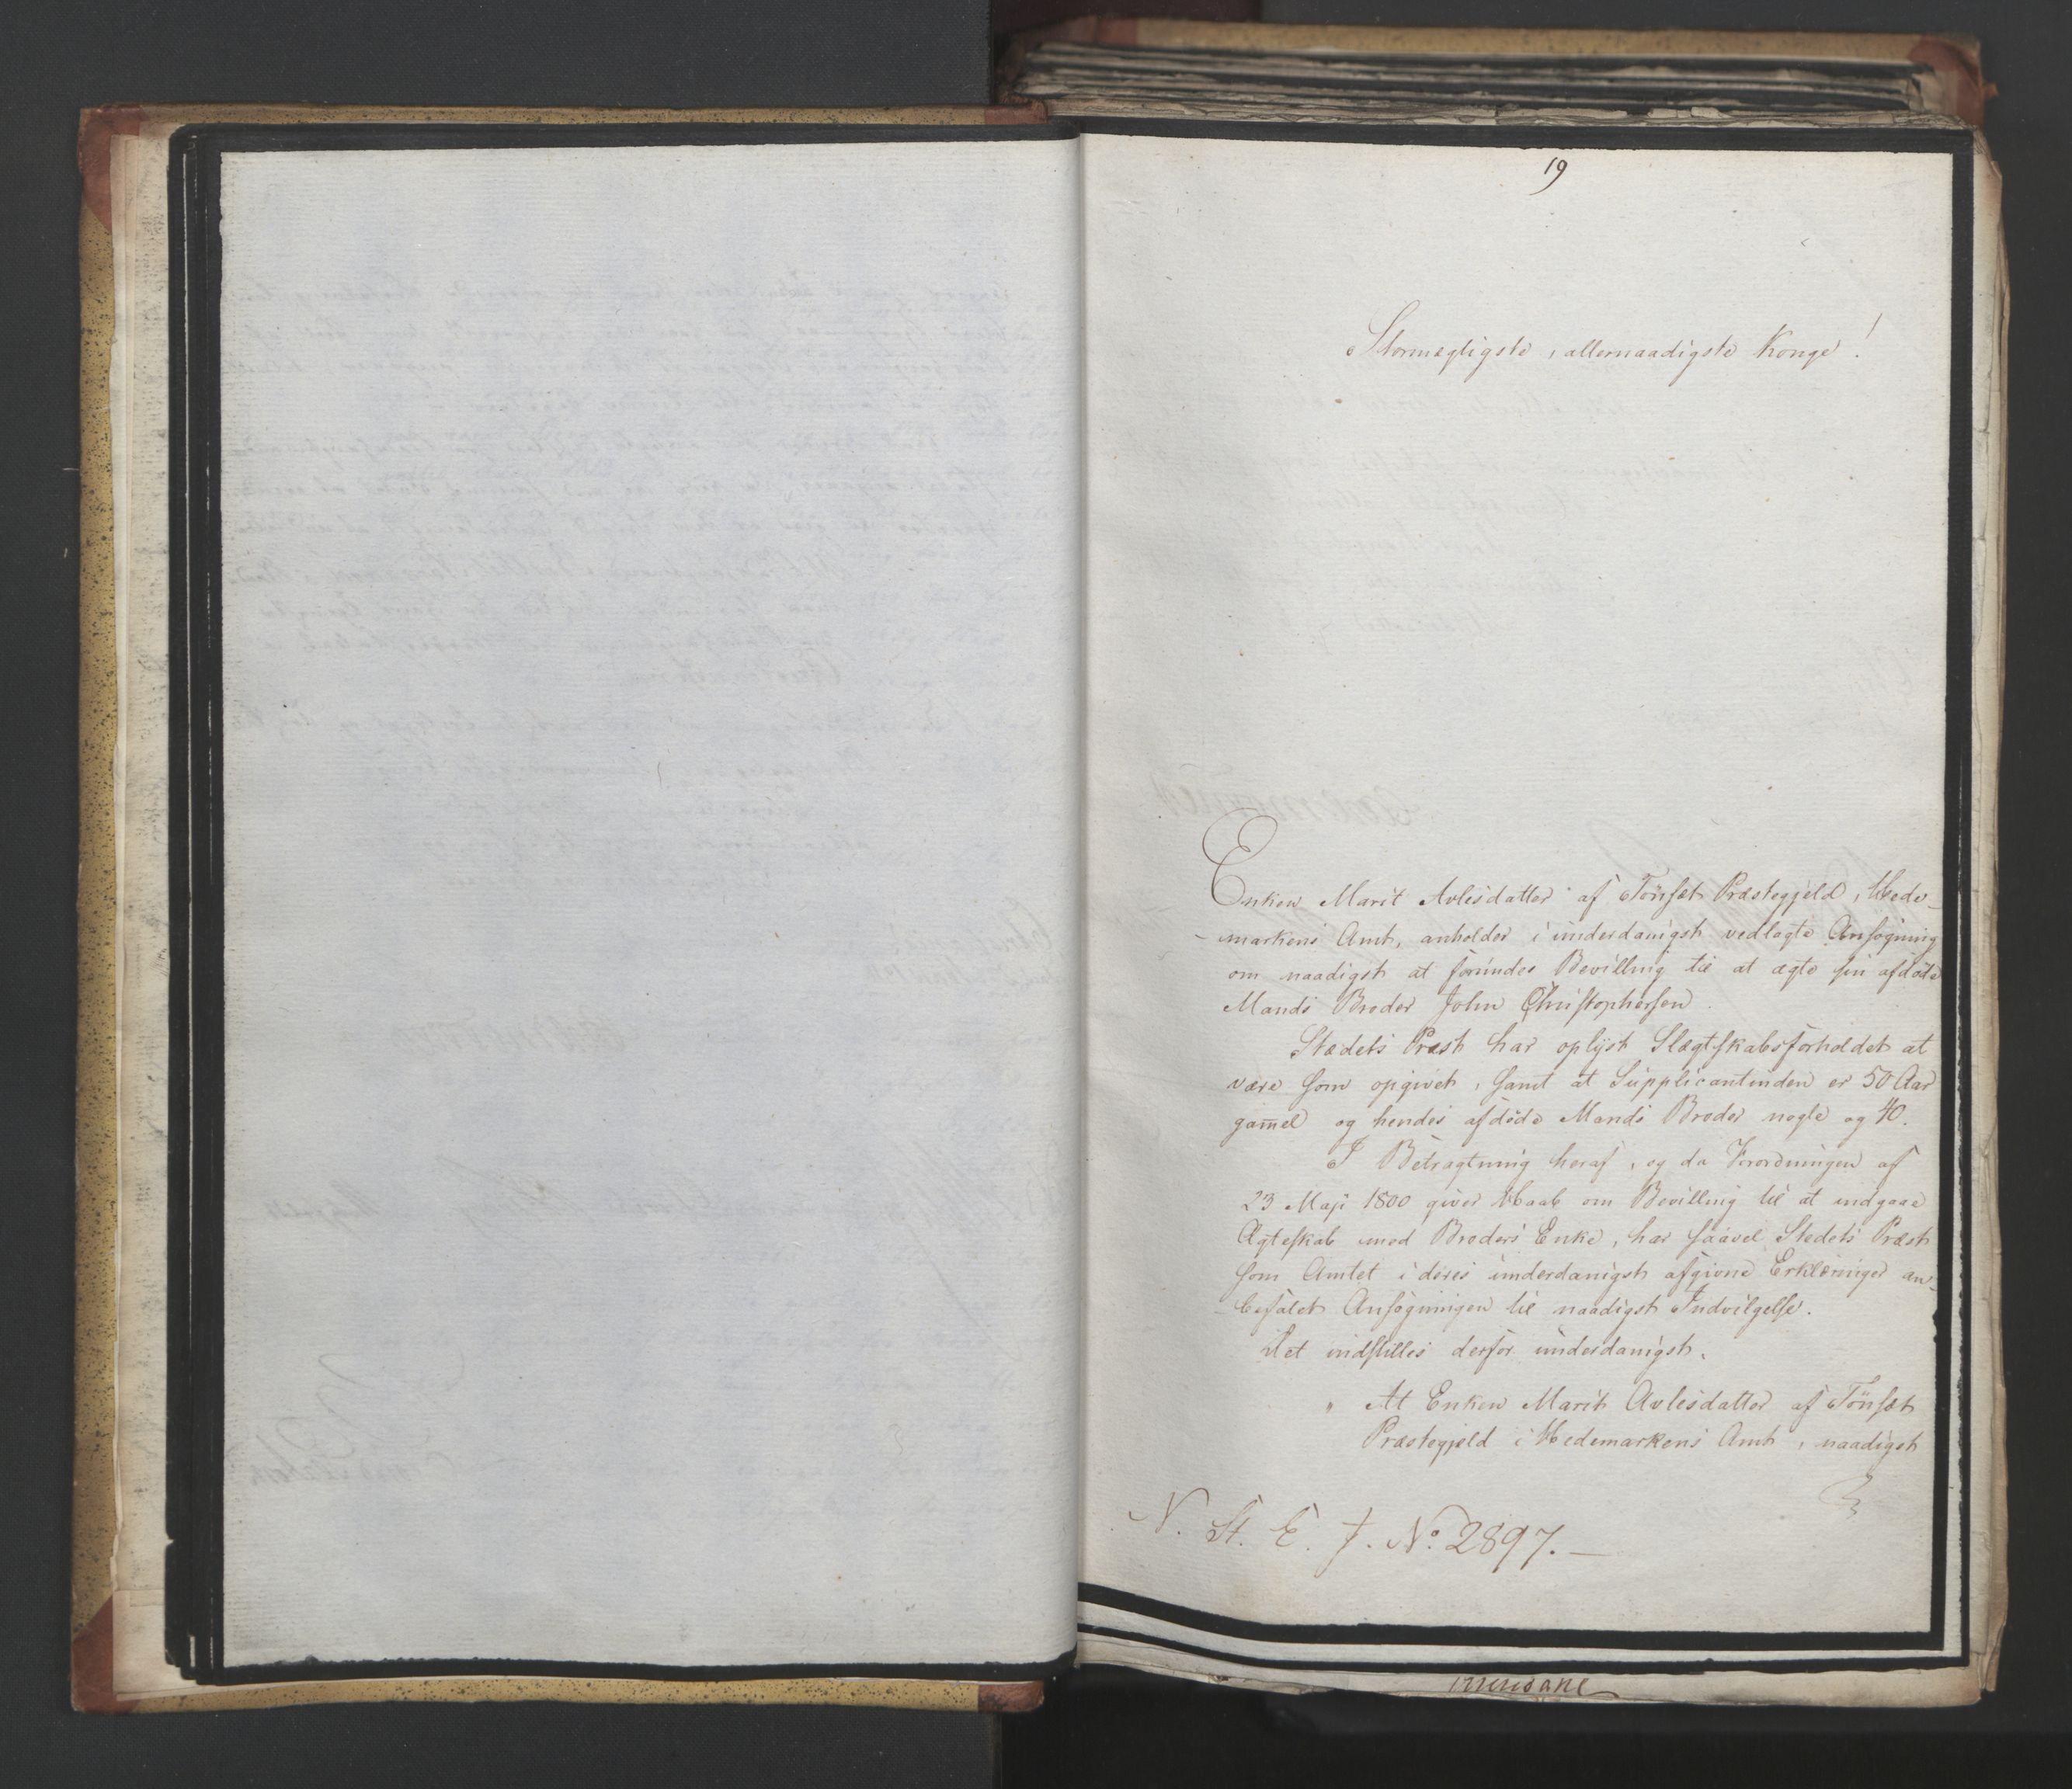 19
Stormægtigste, allernaadigste Konge!
Enken Marit Avlesdatter af Tönset Præstegjeld, Hede-
markens Amt, anholder i underdanigst vedlagte Ansøgning
om naadigst at forundes Bevilling til at ægte sin afdöde
Mands Broder John Christophersen.
Stedets Præst har oplyst Slægtskabsforholdet at
være som opgivet, samt at Supplicantinden er 50 Aar
gam̄el og hendes afdöde Mands Broder nogle og 40.
I Betragtning heraf, og da Forordningen af
23 Maji 1800 giver Haab om Bevilling til at indgaae
Ægteskab med Broders Enke, har saavel Stedets Præst
som Amtet i deres underdanigst afgivne Erklæringer an-
befalet Ansøgningen til naadigst Indvilgelse.
Det indstilles derfor underdanigst.
" At Enken Marit Avlesdatter af Tönset
Præstegjeld i Hedemarkens Amt, naadigst
N. St. E. J. No. 2897.